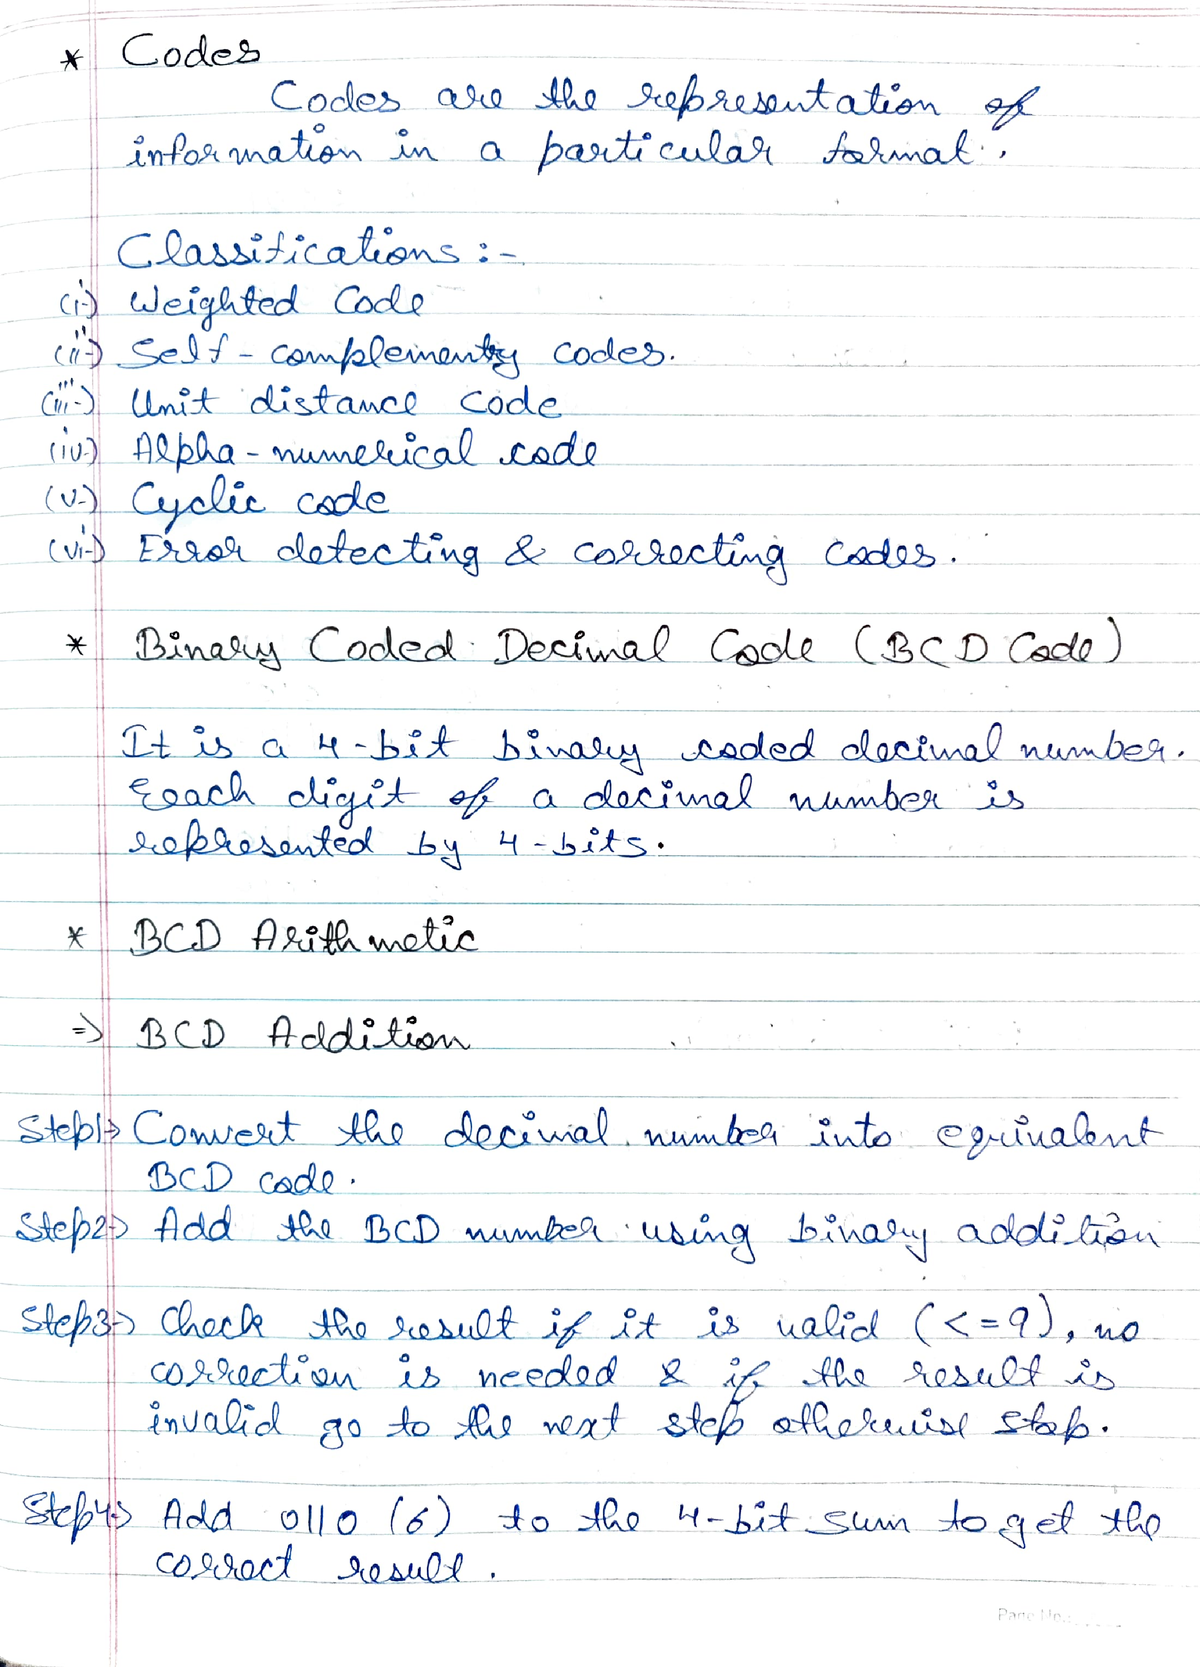 * Codes
Codes are the representation of
information in a particular format.
Classifications :-
(i-) Weighted Code
(ii-) Self - complementry codes.
(iii-) Unit distance code
(iv-) Alpha - numerical code
(v-) Cyclic code
(vi-) Error detecting & correcting codes.
* Binary Coded Decimal Code (BCD Code)
It is a 4-bit binary coded decimal number.
Each digit of a decimal number is
represented by 4-bits.
* BCD Arithmetic
=> BCD Addition
Step1-> Convert the decimal number into equivalent
BCD code.
Step2-> Add the BCD number using binary addition
Step3-> Check the result if it is valid (<=9), no
correction is needed & if the result is
invalid go to the next step otherwise stop.
Step4-> Add 0110 (6) to the 4-bit sum to get the
correct result.
Page No.: